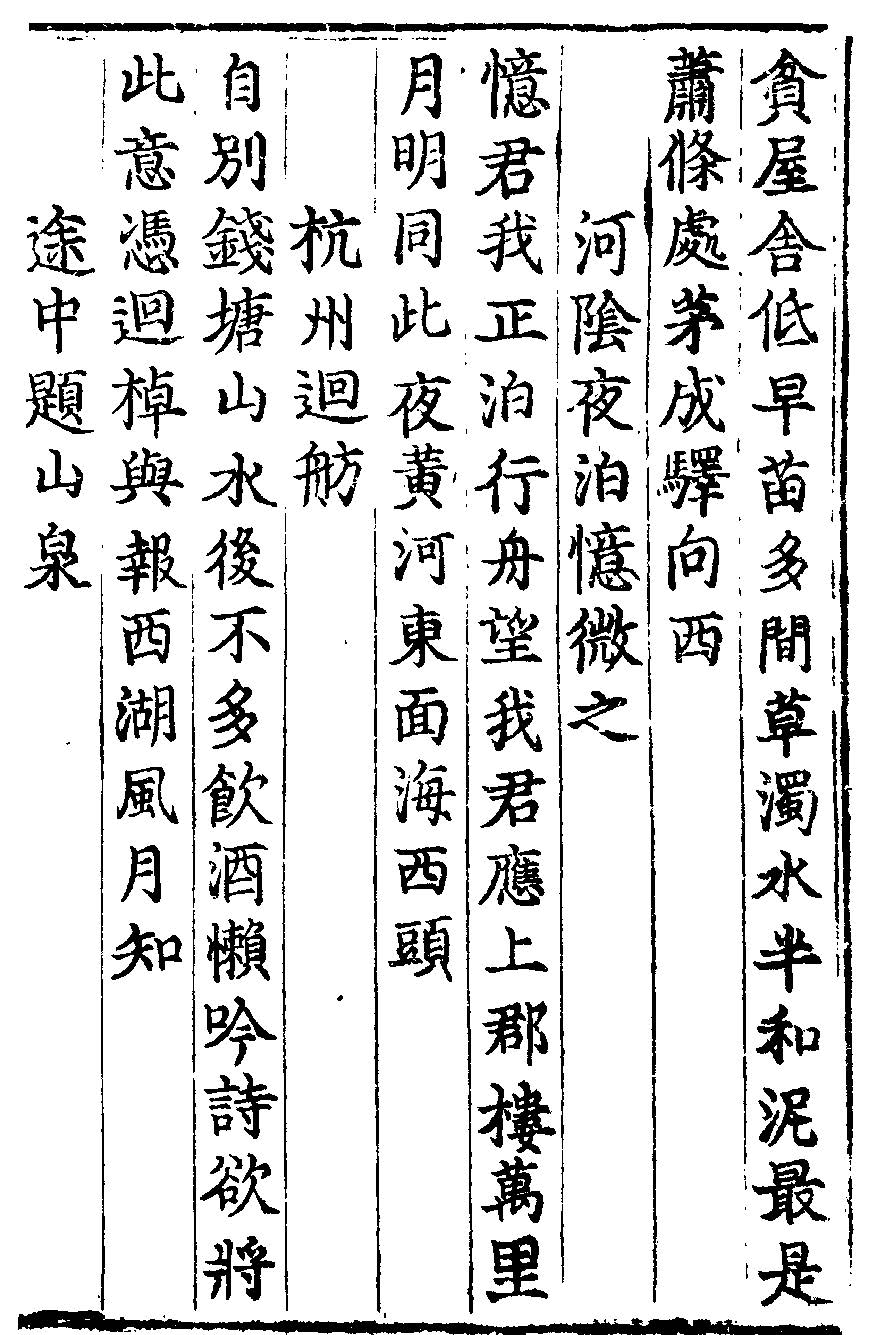 貧屋舎低早苗多間草濁水半和泥最是
蕭條處茅成驛向西
河陰夜泊憶微之
憶君我正泊行舟望我君應上郡樓萬里
月明同此夜黄河東面海西頭
杭州迴舫
自別錢塘山水後不多飲酒懶吟詩欲將
此意憑迴棹與報西湖風月知
途中題山泉